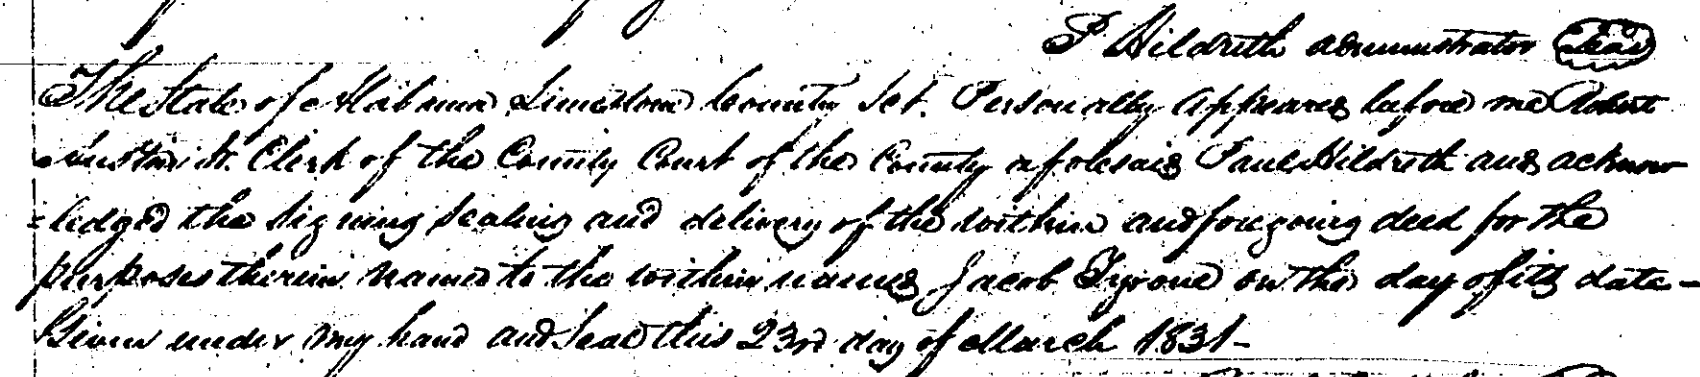 P Hildreth administrator Seal
The State of Alabama Limestone County Sct. Personally appeared before me Robert
Austin Jr. Clerk of the County Court of the County aforesaid Paul Hildreth and acknow
=ledged the signing sealing and delivery of the within and foregoing deed for the
purposes therein named to the within named Jacob Tyrone on the day of its date -
Given under my hand and seal this 23rd day of March 1831 -